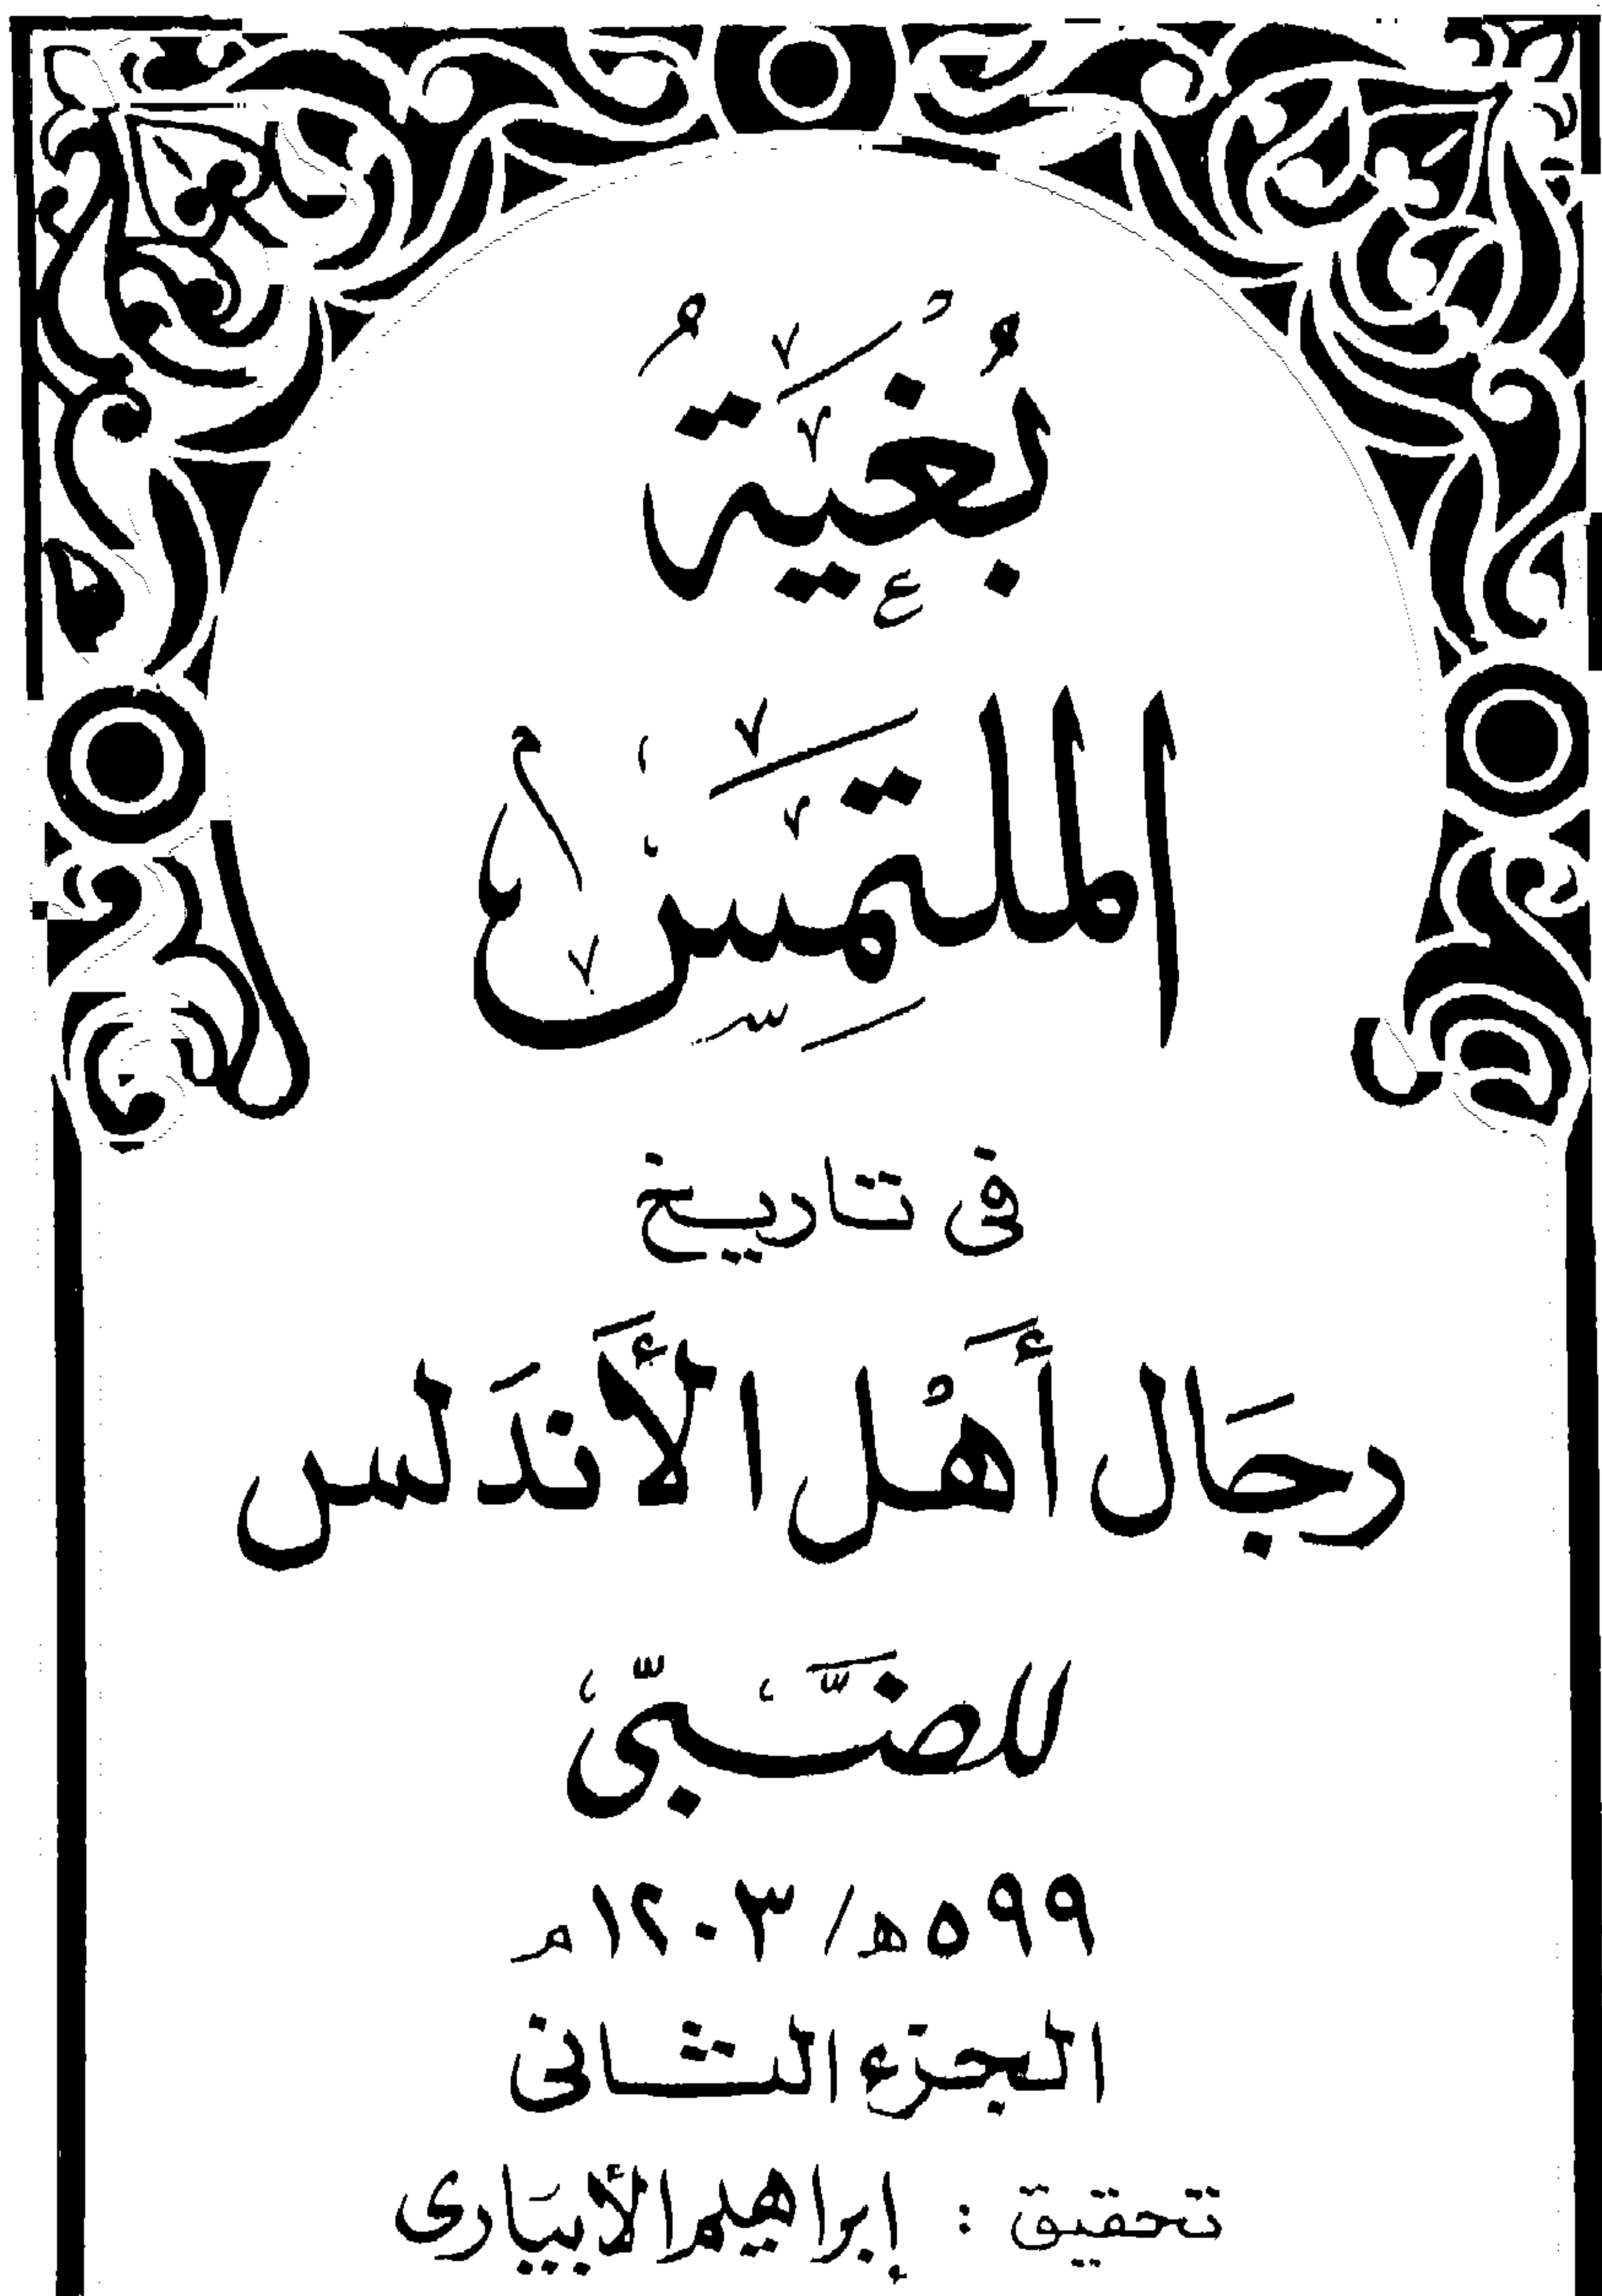 بُغيَةُ
الملتَمِسُ
فى تاريخ
رجَال أَهْل الأَندَلس
للضَّبىّ
٥٩٩ه/ ١٢٠٣م
الجزء الثانى
تحقيق : إبراهيم الأبيَارى